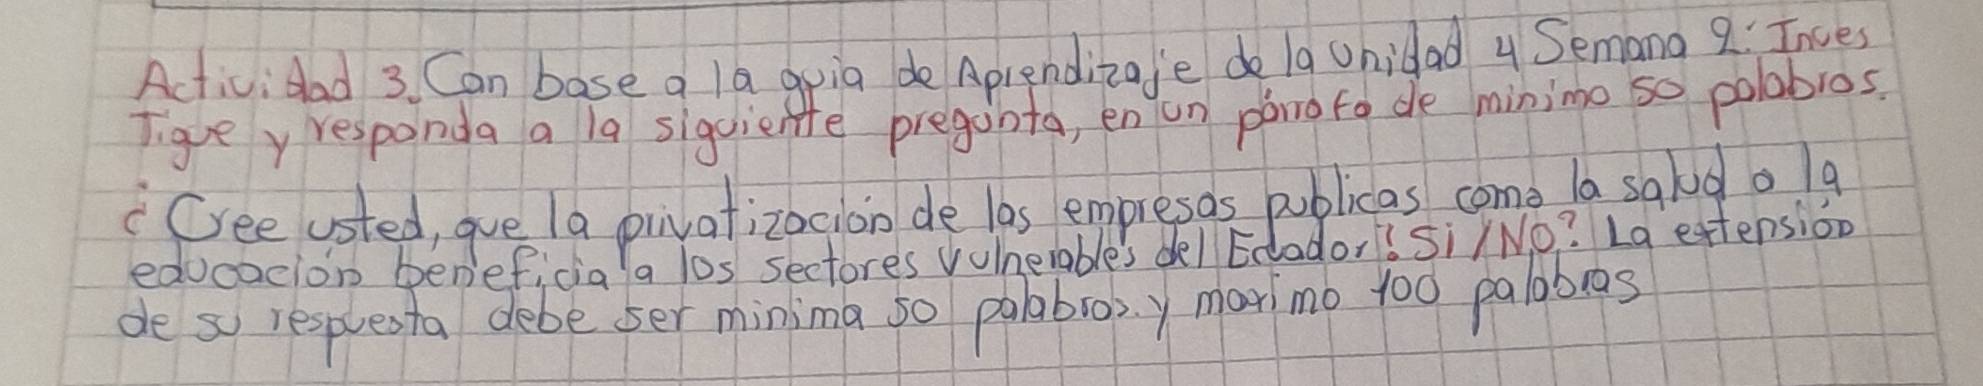 Actividad 3. Con base a la guia de Aprendizaje de la unidad 4 Semana 2: Inves
Tigue y responda a la siguiente pregunta, en un párrafo de minimo 50 palabras.
¿Cree usted, que la privatización de las empresas publicas como la salud o la
educación beneficia a los sectores vulnerables del Ecuador? Si/No? La extensión
de su respuesta debe ser minima 50 palabras. y maximo 100 palabras